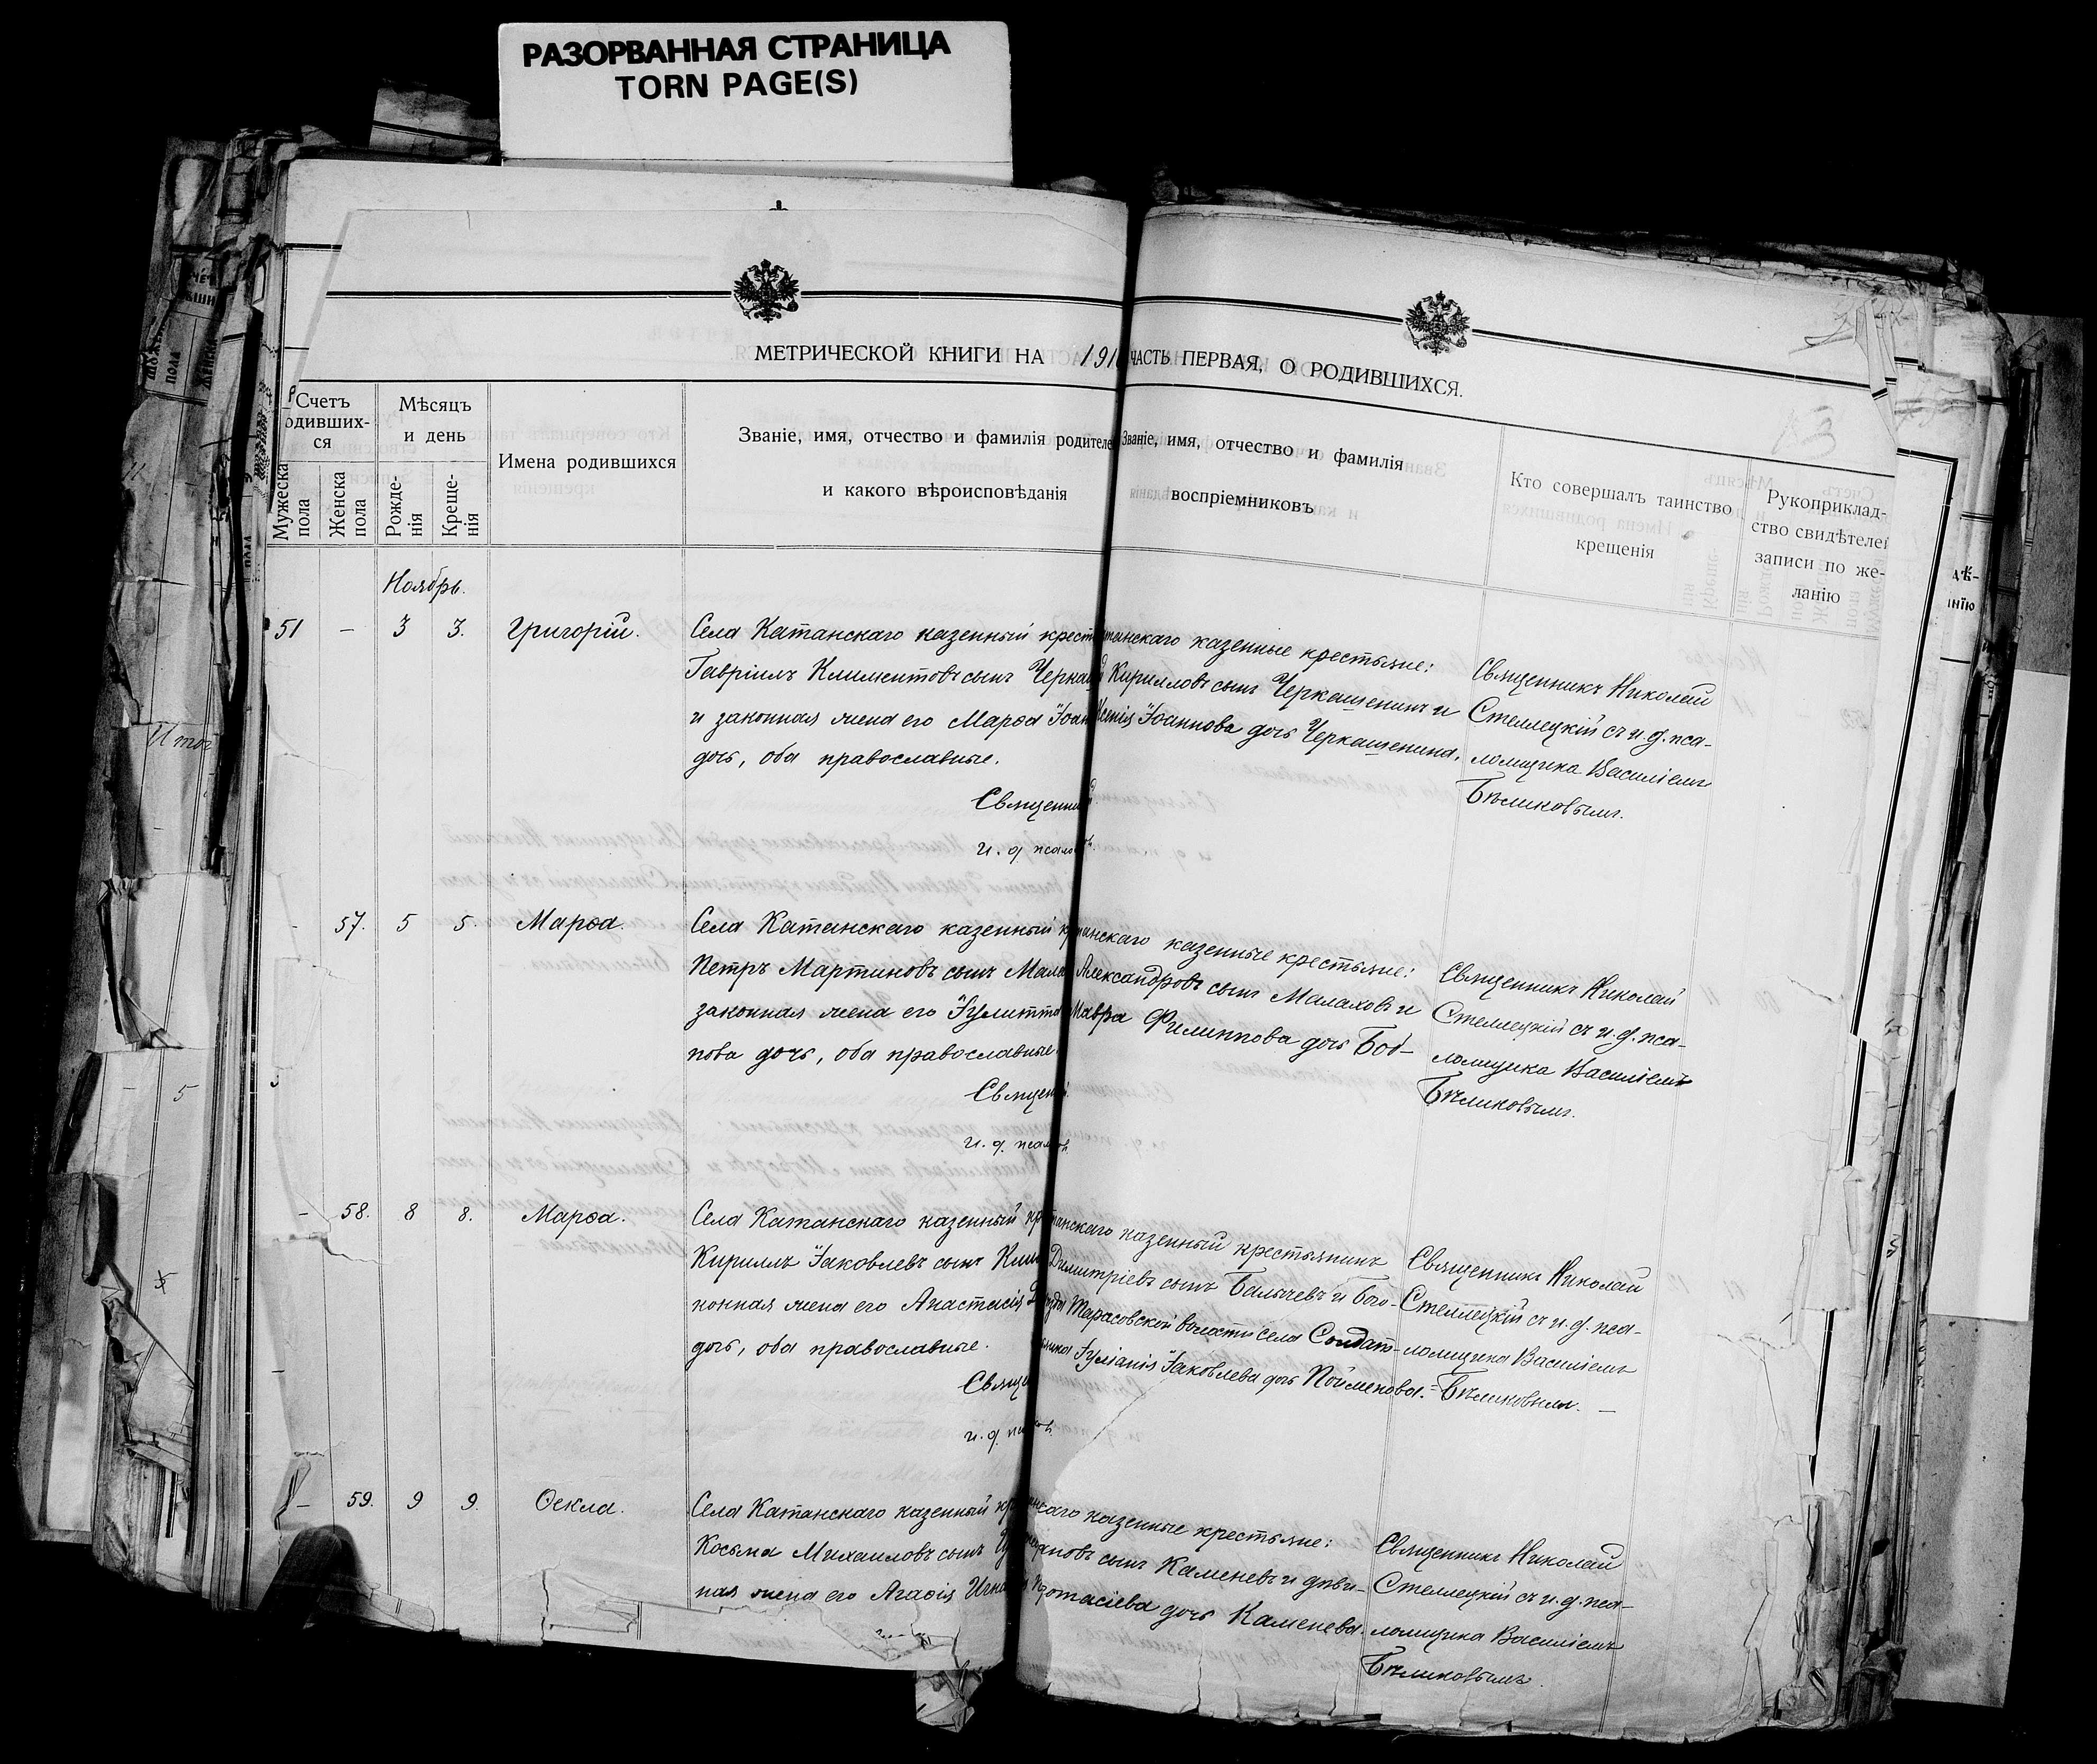 РАЗОРВАННАЯ СТРАНИЦА
TORN PAGE(S)
МЕТРИЧЕСКОЙ КНИГИ НА 191
ЧАСТЬ ПЕРВАЯ, О РОДИВШИХСЯ.
3
Счетъ
родивших-
ся
Мужеска
пола
Женска
пола
Мѣсяцъ
и день
Рожде-
нія
Креще-
нія
Имена родившихся
Званіе, имя, отчество и фамилія родителе
и какого вѣроисповѣданія
Званіе, имя, отчество и фамилія
воспріемниковъ
Кто совершалъ таинство
крещенія
Рукоприклад-
ство свидѣтелей
записи по же-
ланію
Ноябрь.
51 – 3 3. Григорій.
Села Катанскаго казенный крест
Гавріилъ Климентовъ сынъ Черка
и законная жена его Марѳа Іоан
дочь, оба православные.
Священни
и. д. псал
танскаго казенные крестьяне:
Кирилловъ сынъ Черкашенинъ и
Ксенія Іоаннова дочь Черкашенина.
Священникъ Николай
Стеллецкій съ и. д. пса-
ломщика Василіемъ
Бѣликовымъ.
- 57. 5 5. Марѳа.
Села Катанскаго казенный кр
Петръ Мартиновъ сынъ Мала
законная жена его Іулитта
пова дочь, оба православные.
Священ
и. д. псал
танскаго казенные крестьяне:
Александровъ сынъ Малаховъ и
Мавра Филиппова дочь Боб-
Священникъ Николай
Стеллецкій съ и. д. пса-
ломщика Василіемъ
Бѣликовымъ.
- 58. 8 8. Марѳа.
Села Катанскаго казенный кр
Кириллъ Іаковлевъ сынъ Кли
конная жена его Анастасія
дочь, оба православные.
Свящ
и. д.
танскаго казенный крестьянинъ
Димитріевъ сынъ Балычевъ и Бого-
Тарасовской волости села Солдат-
Іуліанія Іаковлева дочь Пойменова.=
Священникъ Николай
Стеллецкій съ и. д. пса-
ломщика Василіемъ
Бѣликовымъ. –
– 59. 9 9. Ѳекла.
Села Катанскаго казенный кр
Косьма Михаиловъ сынъ
ная жена его Агаѳія Игна
нскаго казенные крестьяне:
сынъ Каменевъ и дѣви-
Протасіева дочь Каменева.
Священникъ Николай
Стеллецкій съ и. д. пса-
ломщика Василіемъ
Бѣликовымъ.